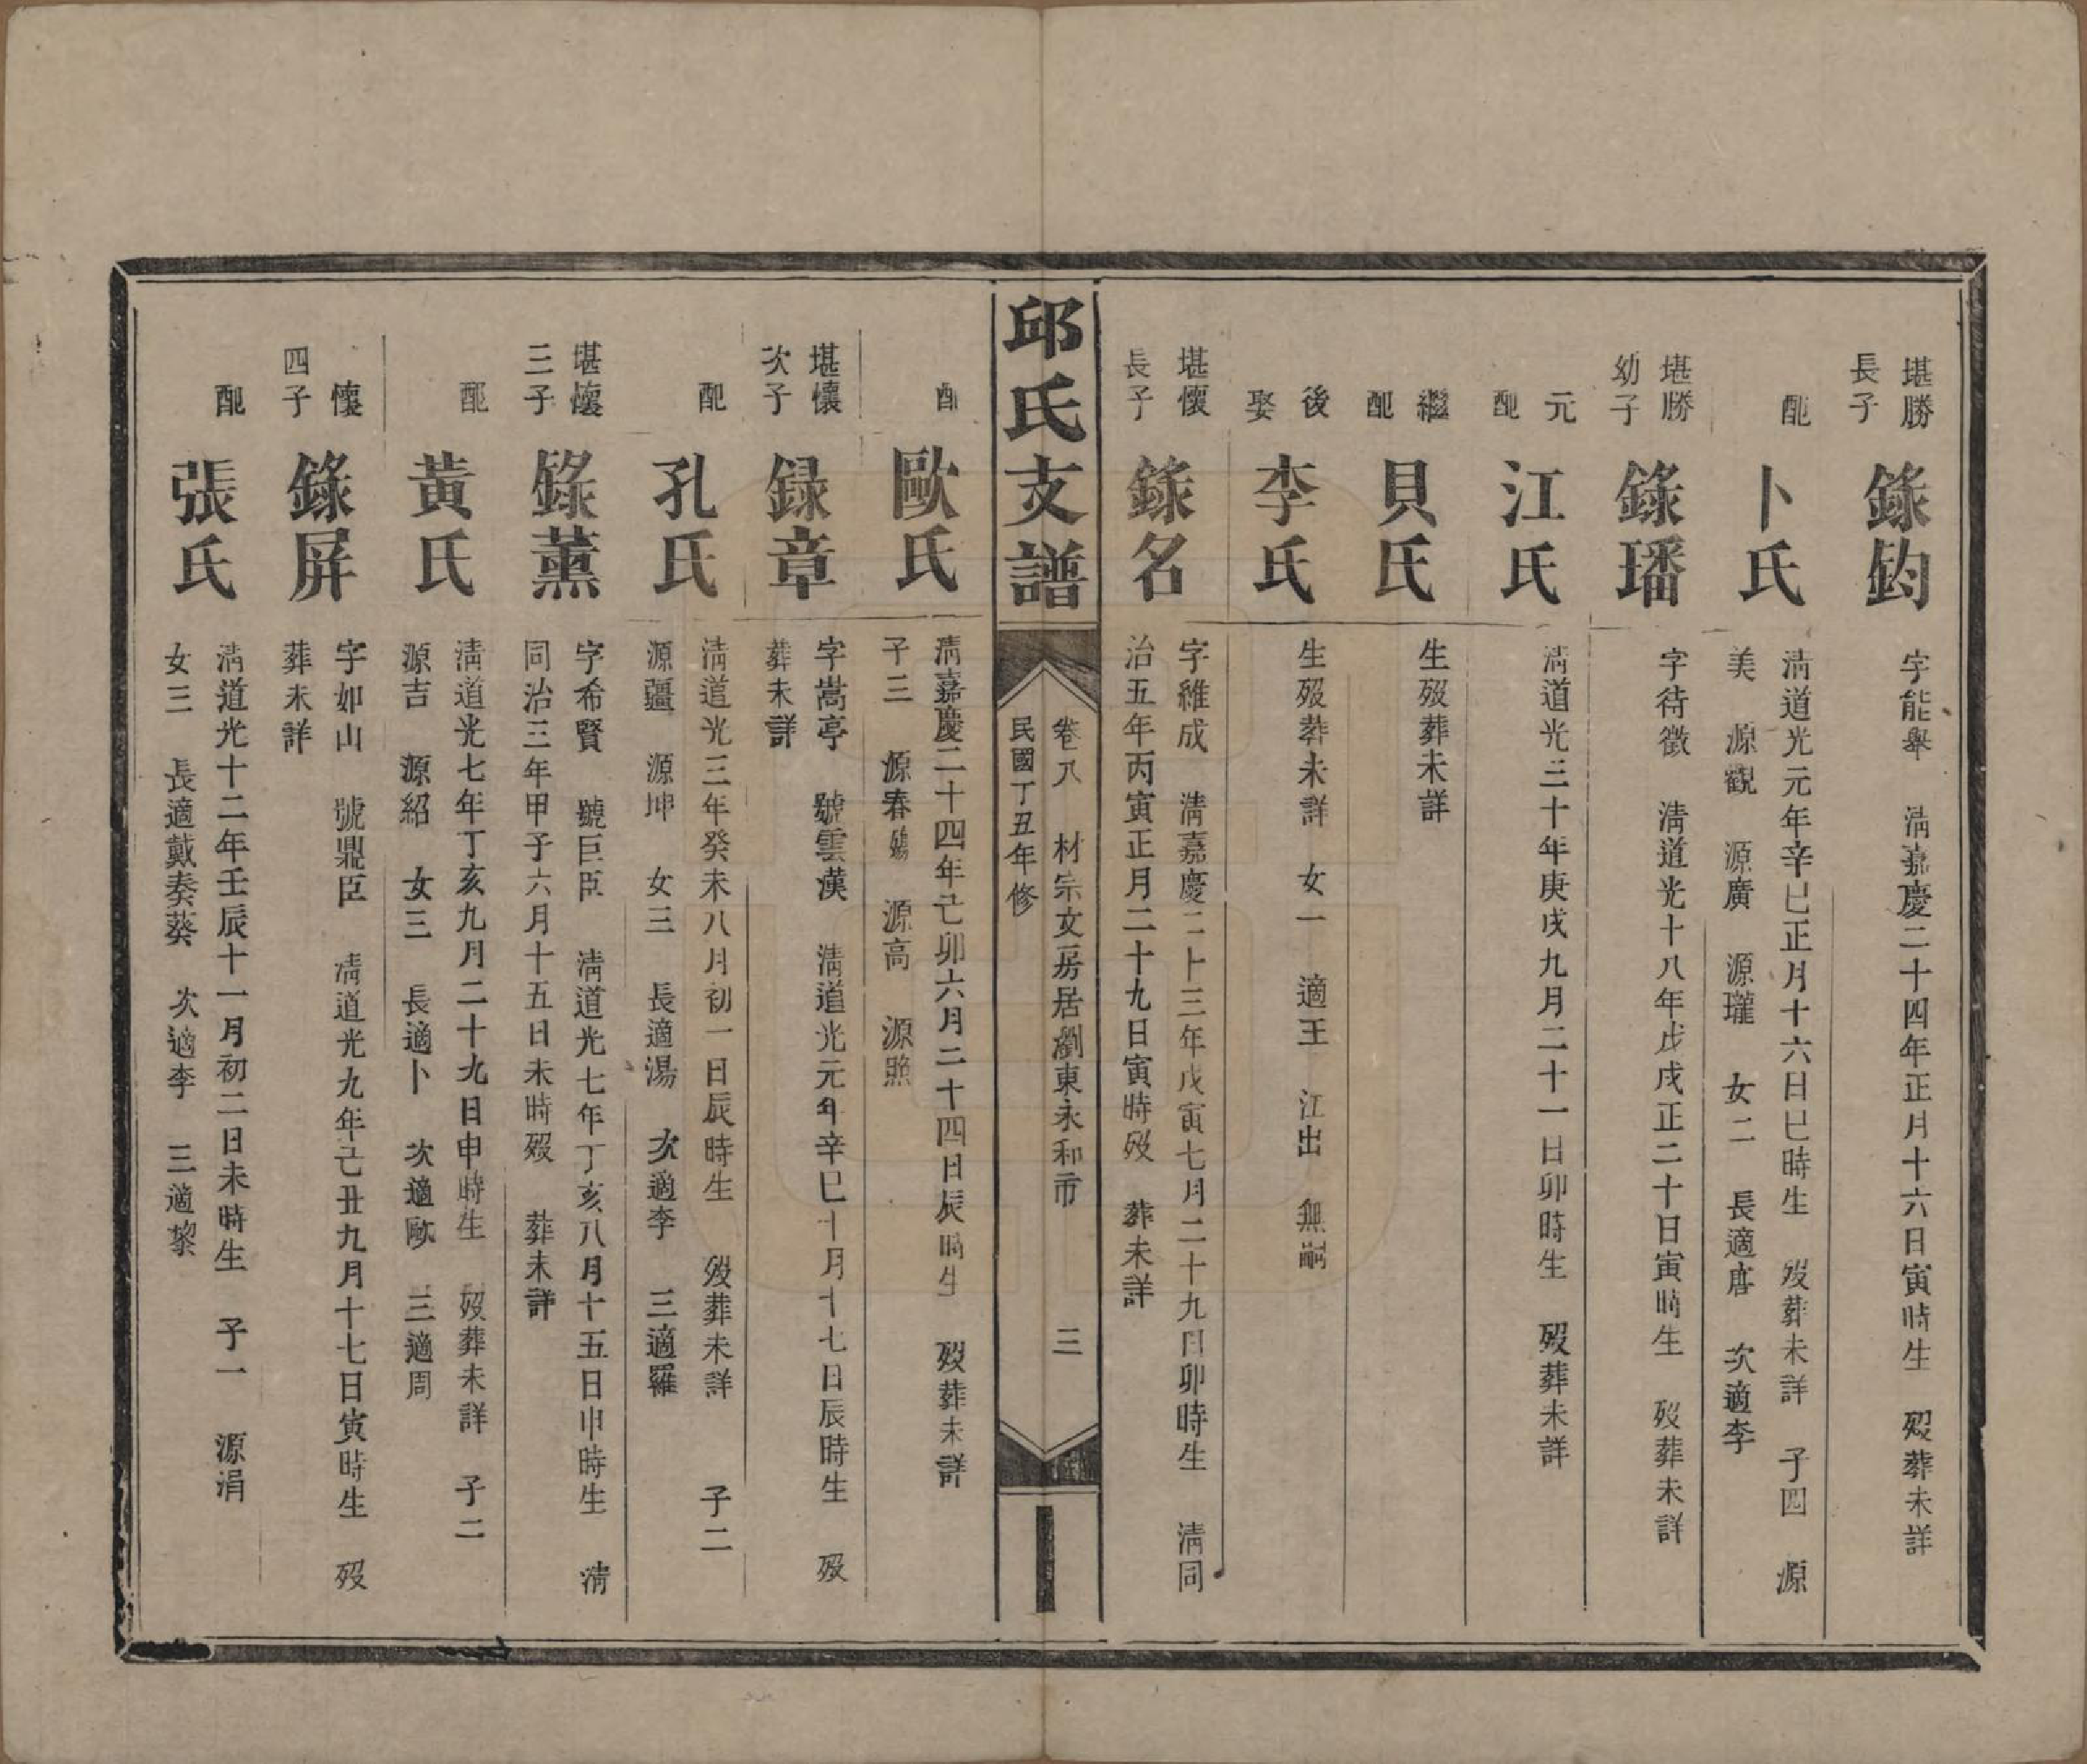 堪勝
長子
錄鈞
字能舉　淸嘉慶二十四年正月十六日寅時生　歿葬未詳
配
卜氏
淸道光元年辛巳正月十六日巳時生　歿葬未詳　子四　源
美　源觀　源廣　源瓏　女二　長適唐　次適李
堪勝
幼子
錄璠
字待徵　淸道光十八年戊戌正二十日寅時生　歿葬未詳
元
配
江氏
淸道光三十年庚戌九月二十一日卯時生　歿葬未詳
繼
配
貝氏
生歿葬未詳
後
娶
李氏
生歿葬未詳　女一　適王　江出　無嗣
堪懷
長子
錄名
字維成　淸嘉慶二十三年戊寅七月二十九日卯時生　淸同
治五年丙寅正月二十九日寅時歿　葬未詳
邱氏支譜
卷八　材宗文房居瀏東永和市　三
民國丁丑年修
配
歐氏
淸嘉慶二十四年己卯六月二十四日辰時生　歿葬未詳
子三　源春殤　源高　源照
堪懷
次子
録章
字嵩亭　號雲漢　淸道光元年辛巳十月十七日辰時生　歿
葬未詳
配
孔氏
淸道光三年癸未八月初一日辰時生　歿葬未詳　子二
源疆　源坤　女三　長適湯　次適李　三適羅
堪懷
三子
錄薰
字希賢　號巨臣　淸道光七年丁亥八月十五日申時生　淸
同治三年甲子六月十五日未時歿　葬未詳
配
黃氏
淸道光七年丁亥九月二十九日申時生　歿葬未詳　子二
源吉　源紹　女三　長適卜　次適歐　三適周
懷
四子
錄屏
字如山　號鼎臣　淸道光九年己丑九月十七日寅時生　歿
葬未詳
配
張氏
淸道光十二年壬辰十一月初二日未時生　子一　源涓
女三　長適戴奏葵　次適李　三適黎